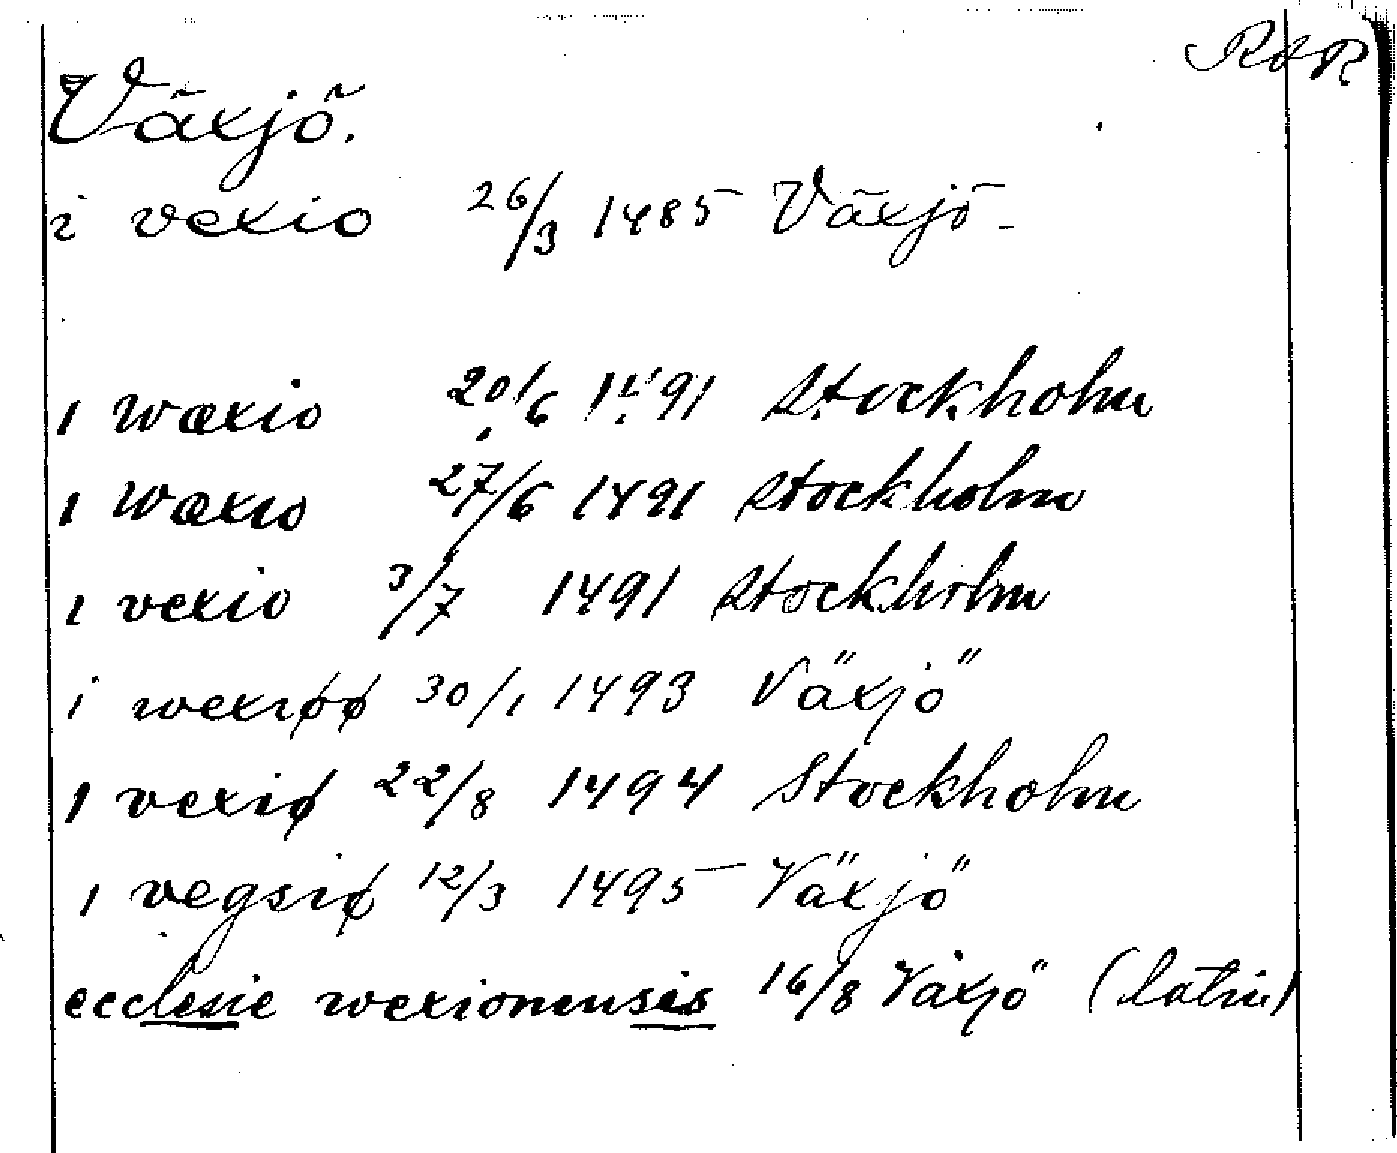 RAR
Växjö.
i vexio 26/3 1485 Växjö
i wæxio 20/6 1491 Stockholm
i wæxio 27/6 1491 Stockholm
i vexio 3/7 1491 Stockholm
i wexiøø 30/1 1493 Växjö
i vexiø 22/8 1494 Stockholm
i vegsiø 12/3 1495 Växjö
ecclesie wexionensis 16/8 Växjö (latin)